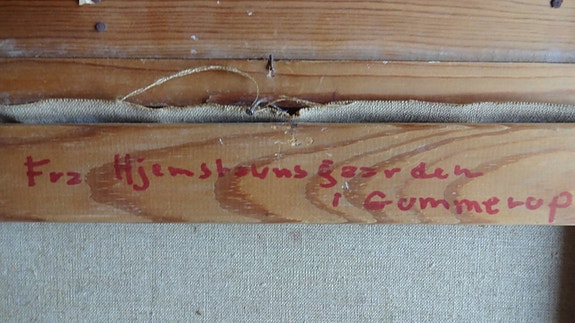 Fra Hjemstavnsgaarden
i Gummerup